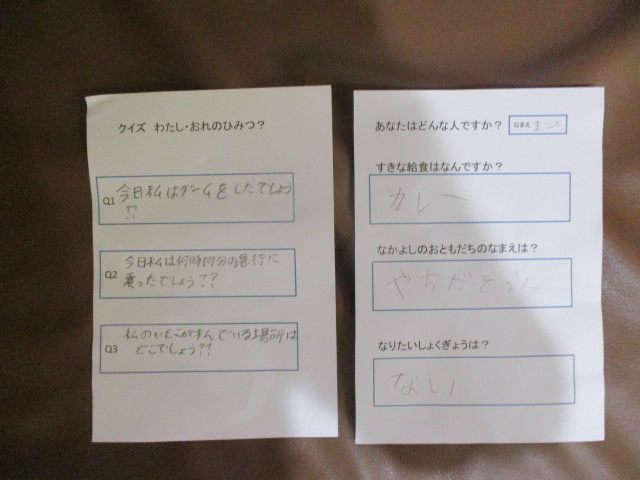 クイズ わたし・おれのひみつ？
Q1 今日私はゲームをしたでしょう
??
Q2 今日私は何時何分の急行に
乗ったでしょう??
Q3 私のいとこがすんでいる場所は
どこでしょう??
あなたはどんな人ですか？ なまえ
すきな給食はなんですか？
カレー
なかよしのおともだちのなまえは？
なりたいしょくぎょうは？
ない